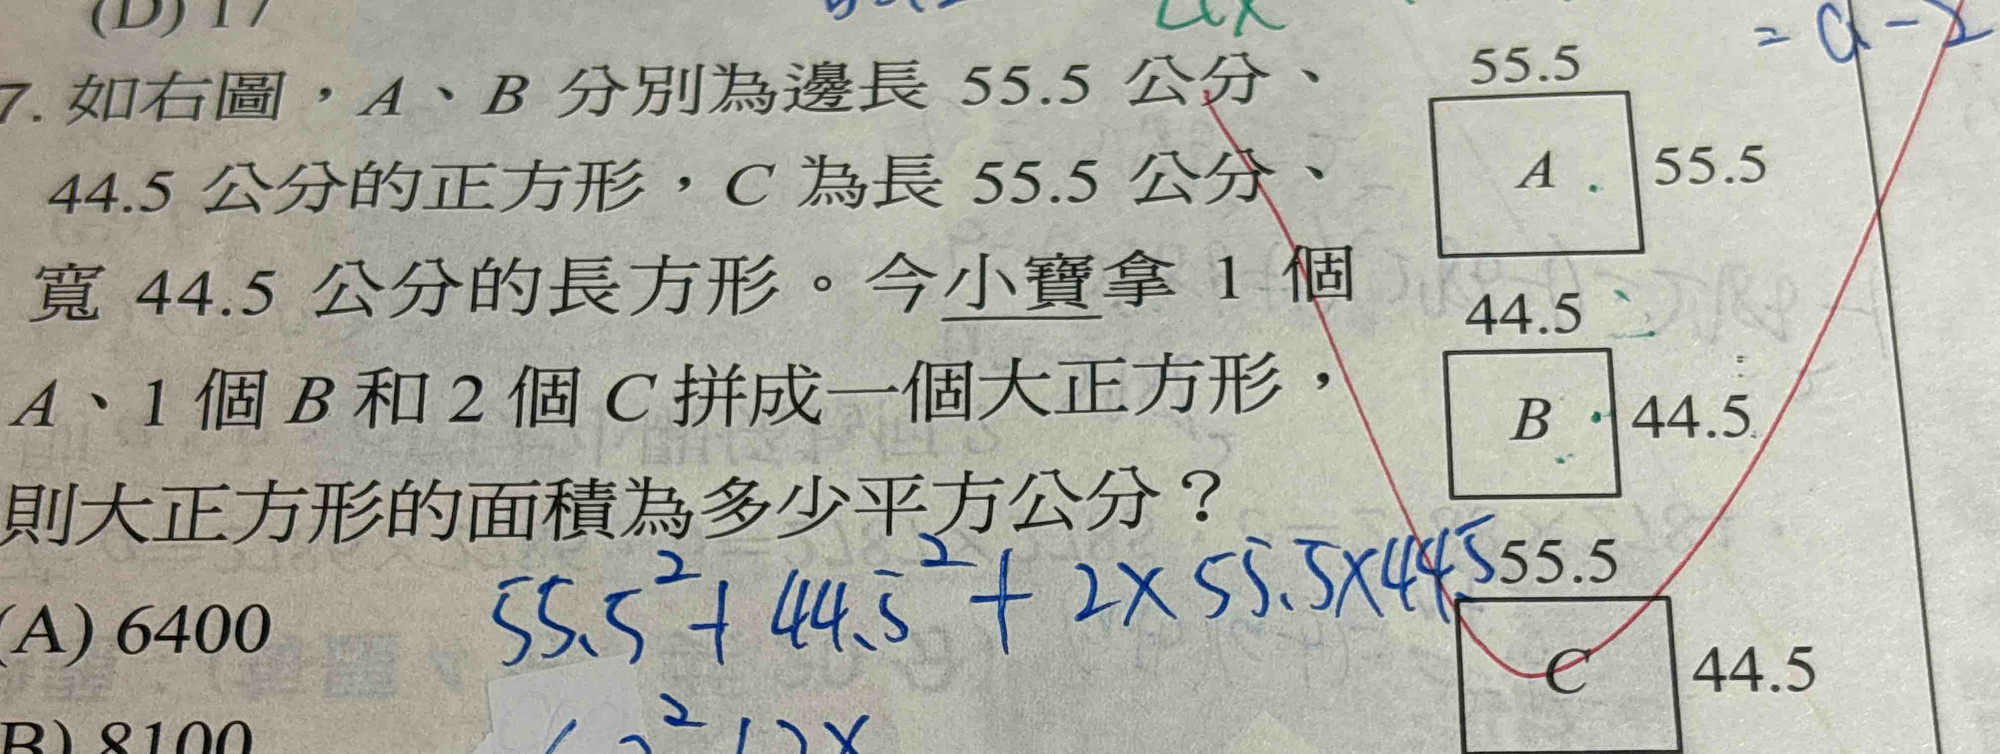 (D) 17
7. 如右圖，A、B 分別為邊長 55.5 公分、
44.5 公分的正方形，C 為長 55.5 公分、
寬 44.5 公分的長方形。今小寶拿 1 個
A、1 個 B 和 2 個 C 拼成一個大正方形，
則大正方形的面積為多少平方公分？
55.5²+44.5²+2×55.5×44.5
(A) 6400
(B) 8100
= a-2
55.5
A
55.5
44.5
B
44.5
55.5
C
44.5